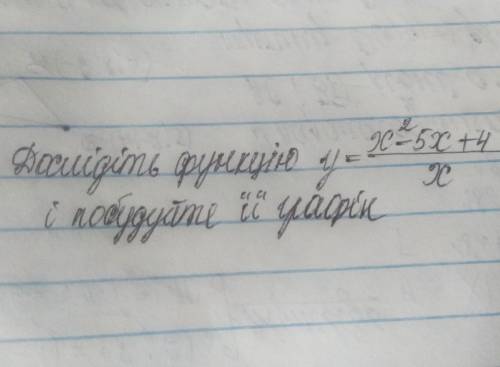 Дослідіть функцію y = \frac{x^2-5x+4}{x}
і побудуйте її графік